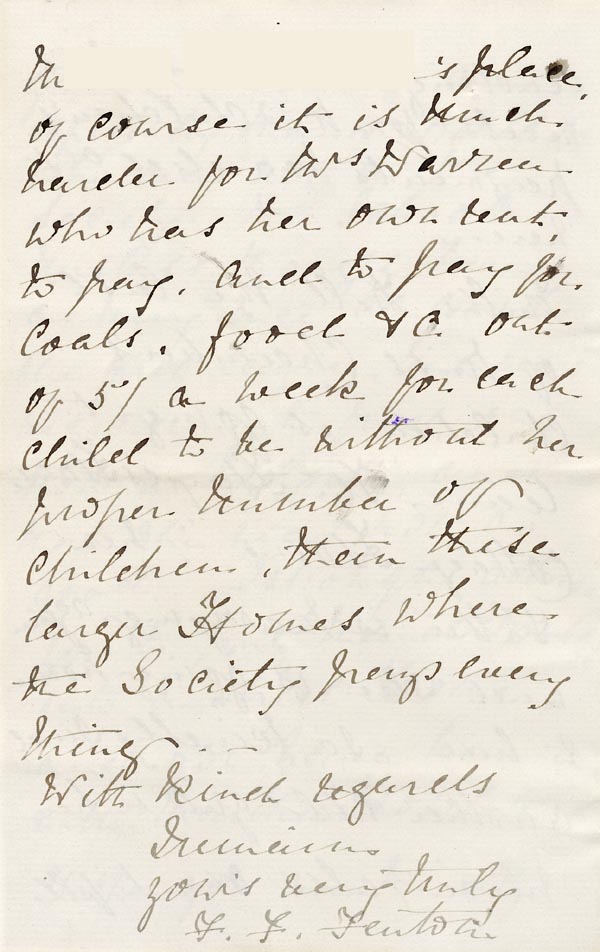 in 's place.
of course it is much
harder for Mrs Warren
who has her own rent,
to pay, and to pay for
coals, food &c out
of 5/ a week for each
child to be without her
proper number of
children, then these
larger Homes where
the Society pays every
thing. —
With kind regards
I remain
yours very truly
F. F. Fenton